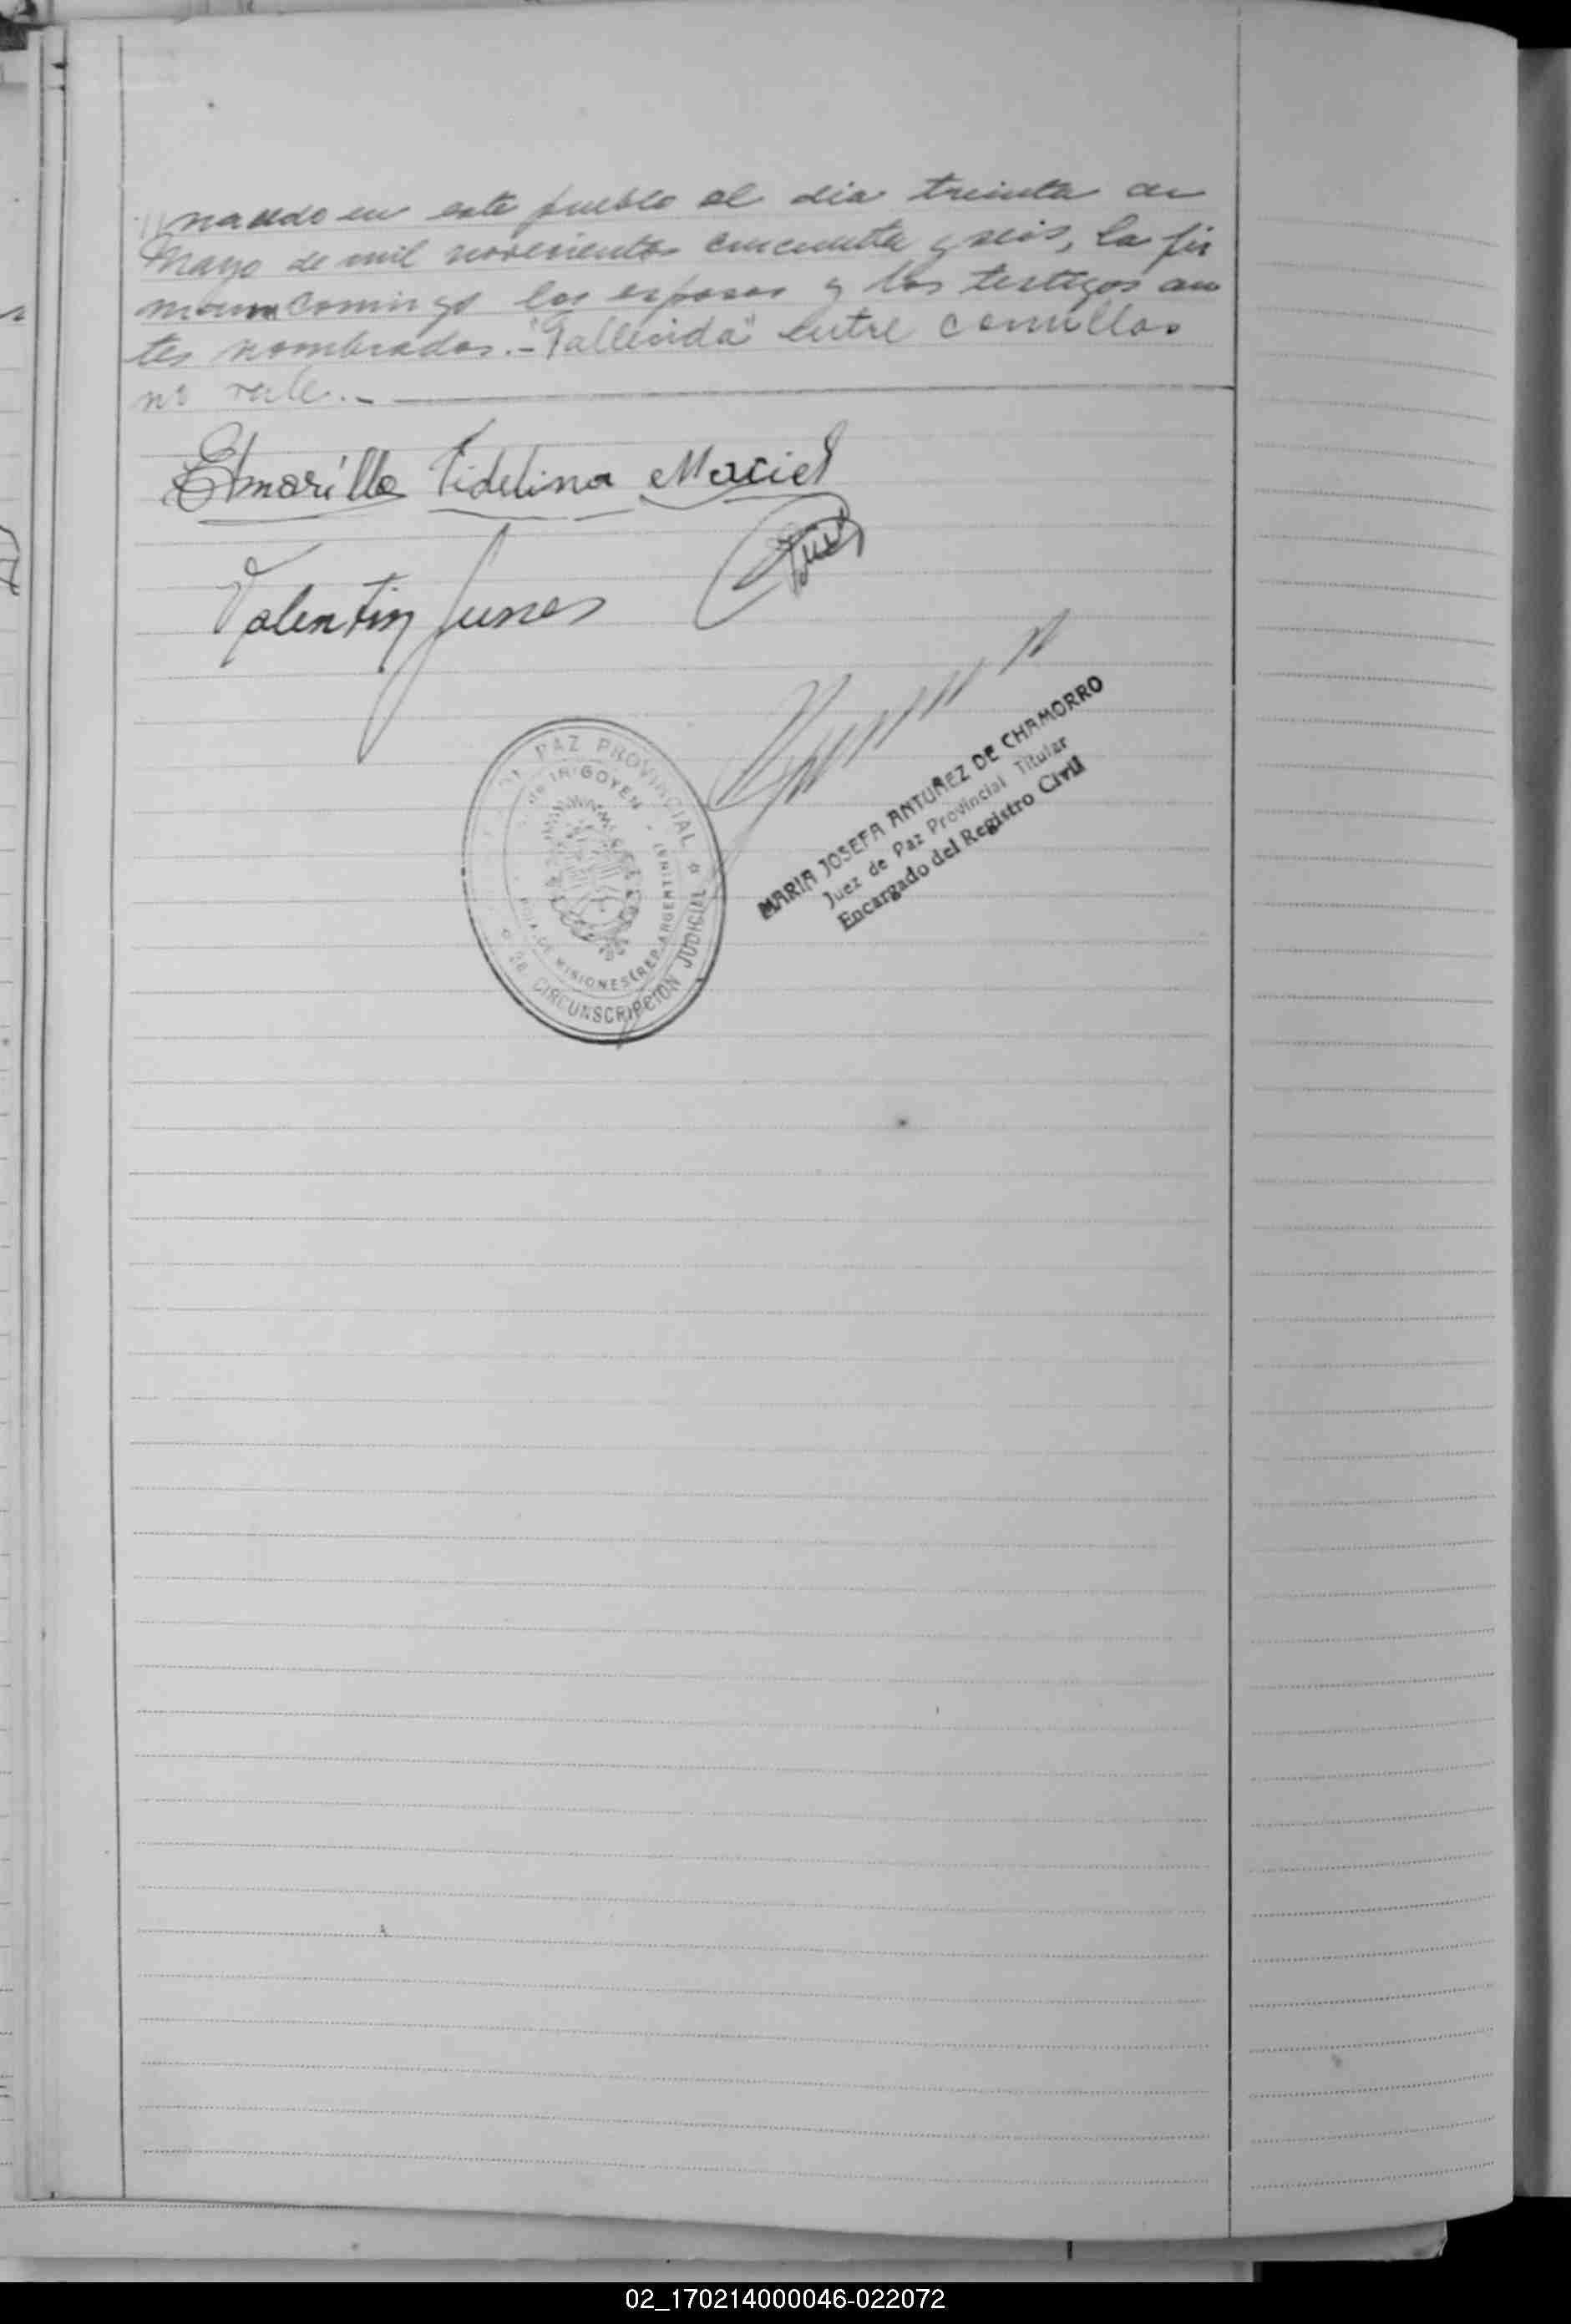 nacido en este pueblo el dia treinta de
Mayo de mil novecientos cincuenta y seis, la fir
maron conmigo los esposos y los testigos an
tes nombrados.- "Fallecida" entre comillas
no vale.-
Amarilla Fidelina Maciel
Valentin Funes
PAZ PROVINCIAL
de IRIGOYEN
PCIA. DE MISIONES (REP. ARGENTINA)
2a CIRCUNSCRIPCION JUDICIAL
MARIA JOSEFA ANTUÑEZ DE CHAMORRO
Juez de Paz Provincial Titular
Encargado del Registro Civil
02_170214000046-022072